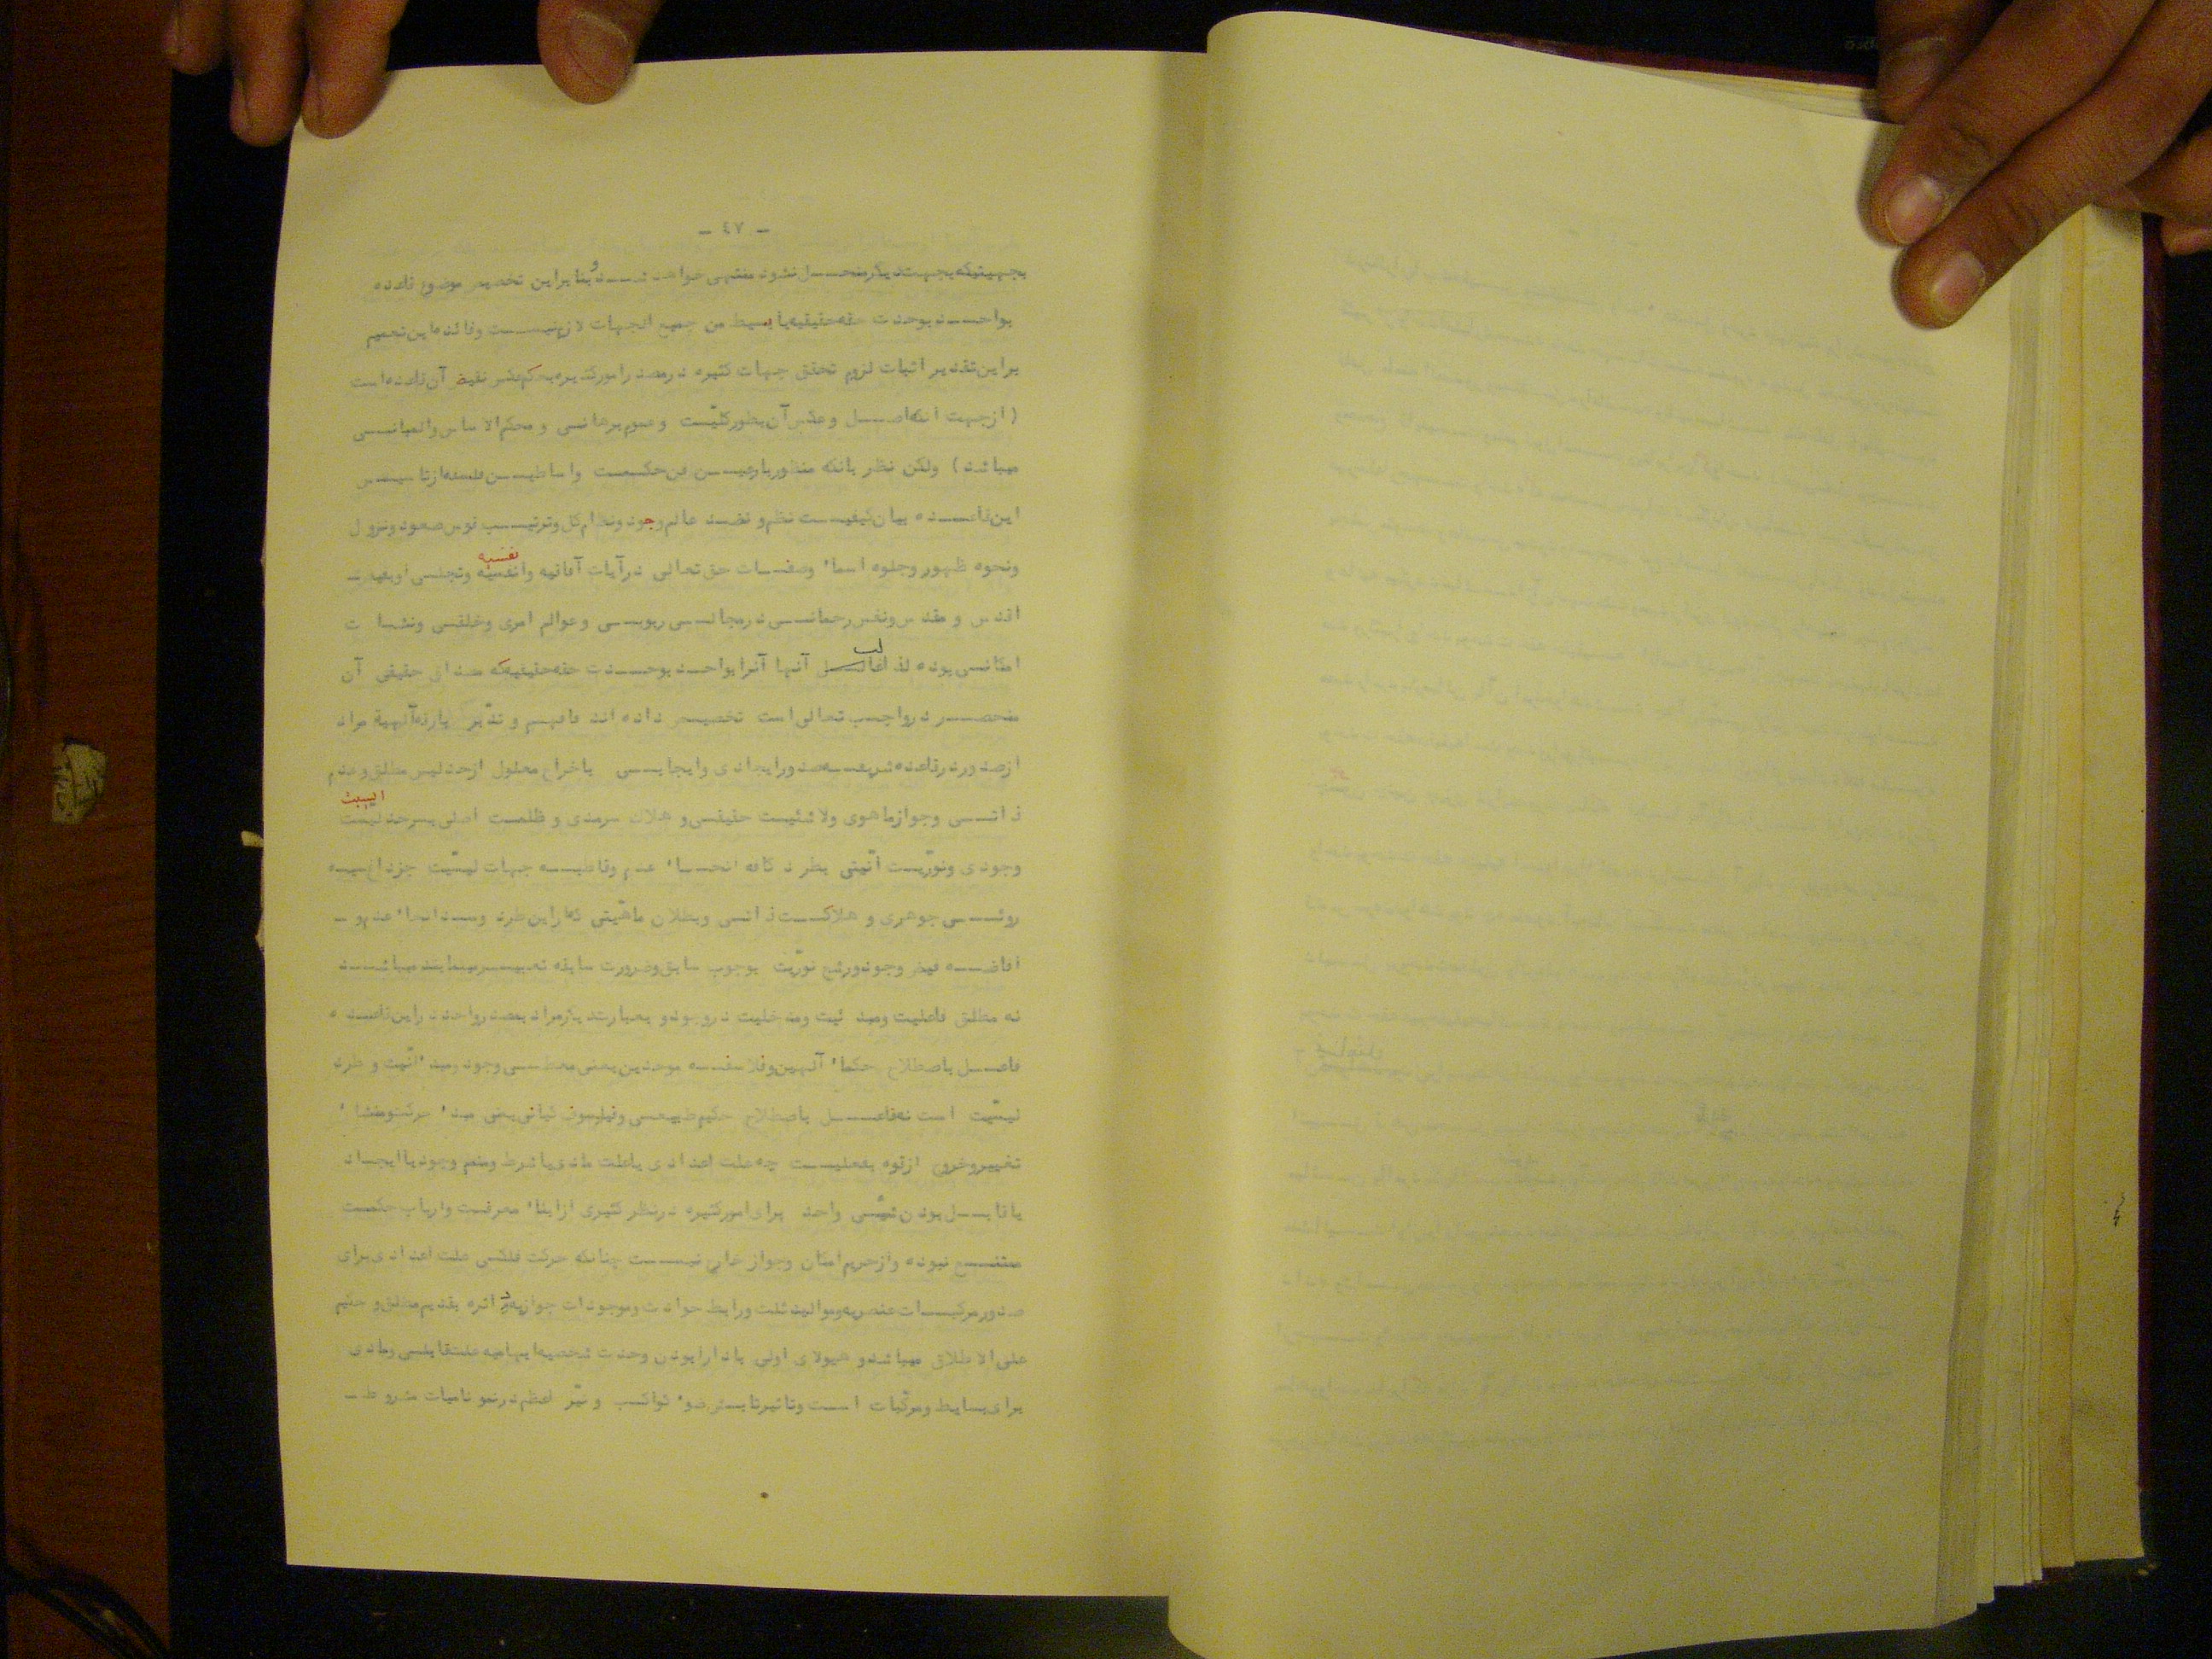 - ٤٧ -
بجهتیکه بجهت دیگر منحل نشود منتهی خواهد شد و بنا براین تخصیص موضوع قاعده
بواحد بوحدت حقه حقیقیه یا بسیط من جمیع الجهات لازم نیست وفائده این تعمیم
براین تقدیر اثبات لزوم تحقق جهات کثیره در مصدر امور کثیره بحکم عکس نقیض آن قاعده است
( از جهت آنکه اصل و عکس آن بطور کلیّت و عموم برهانی و محکم الاساس والمبانی
میباشد ) ولکن نظر بآنکه منظور بارعین فن حکمت واساطین فلسفه از تاسیس
این قاعده بیان کیفیت نظم و نضد عالم وجود ونظام کل وترتیب قوس صعود ونزول
نفسیه
ونحوه ظهور وجلوه اسماء وصفات حق تعالی در آیات آفاقیه وانفسیّه وتجلی او بفیض
اقدس و مقدس ونفس رحمانی در مجالی ربوبی وعوالم امری وخلقی ونشات
امکانی بوده لذا غالب آنها آنرا بواحد بوحدت حقه حقیقیه که مصداق حقیقی آن
منحصر در واجب تعالی است تخصیص داده اند فافهم و تدّبر بارقه الهیة مراد
از صدور در قاعده شریفه صدور ایجادی وایجابی باخراج معلول از حد لیس مطلق وعدم
ایسیت
ذاتی وجواز ماهوی ولاشئیت حقیقی و هلاک سرمدی و ظلمت اصلی بسرحد لیسّت
وجودی ونوریّت انّیتی بطرد کافه انحاء عدم وقاطبه جهات لیسیّت جز داغ سیه
روئی جوهری و هلاکت ذاتی وبطلان ماهیّتی که از این طرد وسد انحاء عدم و
افاضه فیض وجود ورشح نوریّت بوجوب سابق وضرورت سابقه تعبیر مینمایند میباشد
نه مطلق فاعلیت ومبدئیت ومدخلیت در وجود و بعبارت دیگر مراد بمصدر واحد در این قاعده
فاعل باصطلاح حکماء آلهین وفلاسفه موحدین یعنی معطی وجود ومبدء انّیت و طرد
لیسیّت است نه فاعل باصطلاح حکیم طبیعی وفیلسوف کیانی یعنی مبدء حرکت ومنشاء
تغییر وخروج از قوه بفعلیت چه علت اعدادی یاعلت مادی یا شرط ومتمم وجود یا ایجاد
یا قابل بودن شیئی واحد برای امور کثیره در نظر کثیری از ابناء معرفت وارباب حکمت
ممتنع نبوده واز حریم امکان وجواز خارج نیست چنانکه حرکت فلکی علت اعدادی برای
صدور مرکبات عنصریه وموالید ثلث ورابط حوادث وموجودات جوازیه ودائره بقدیم مطلق و حکیم
علی الاطلاق میباشد و هیولای اولی با دارا بودن وحدت شخصیه ابهامیه علت قابلی ومادی
برای بسایط ومرکّبات است وتاثیر تابش ضوء کواکب و نیّر اعظم در نمو نامیات مشروط